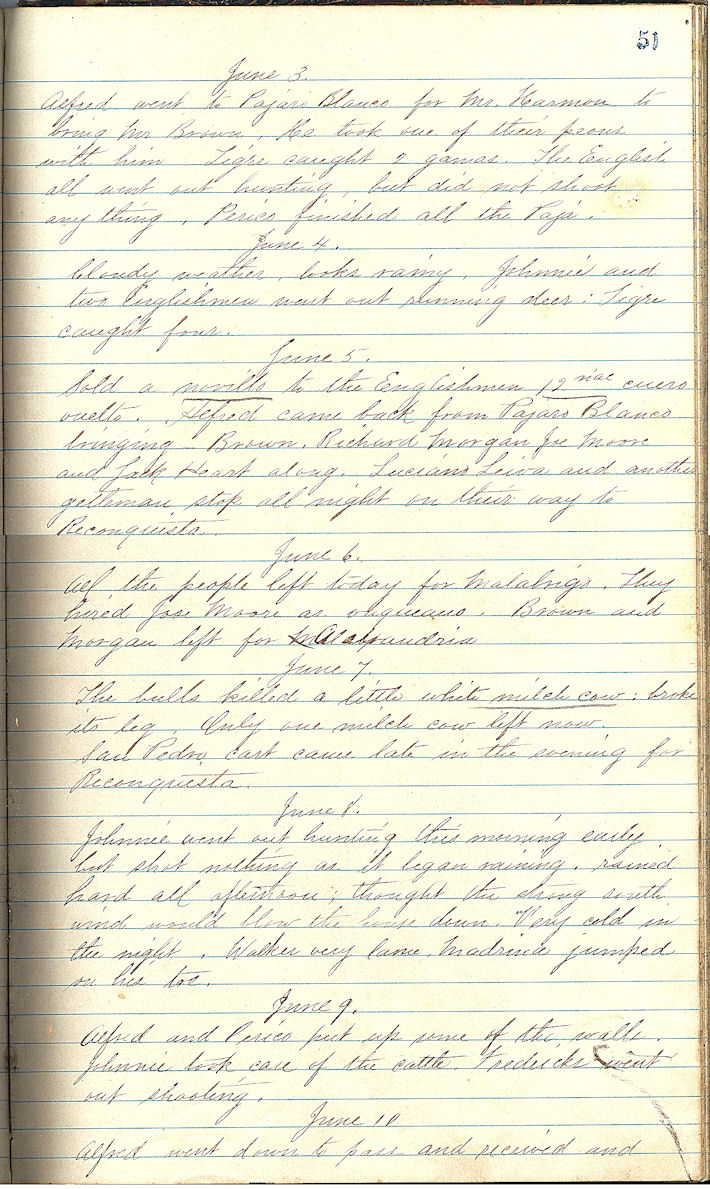 51
June 3.
Alfred went to Pajaro Blanco for Mr. Harmon to
bring Mr Brown. He took one of their peons
with him Tigre caught 2 gamas. The English
all went out hunting, but did not shoot
any thing, Perico finished all the Paja.
June 4.
Cloudy weather, looks rainy, Johnnie and
two Englishmen went out running deer: Tigre
caught four.
June 5.
Sold a novillo to the Englishmen 12 nac cuero
vuelto. Alfred came back from Pajaro Blanco
bringing Brown, Richard Morgan Joe Moore
and Jack Heart along. Luciano Leiva and another
gentleman stop all night on their way to
Reconquista.
June 6.
All the people left today for Malabrigo. They
hired Jose Moore as vaqueano. Brown and
Morgan left for Alexandria
June 7.
The bulls killed a little white milch cow: broke
its leg Only one milch cow left now.
San Pedro cart came late in the evening for
Reconquesta.
June 8.
Johnnie went out hunting this morning early
but shot nothing as it began raining, rained
hard all afternoon; thought the strong south
wind would blow the house down. Very cold in
the night. Walker very lame, Madrina jumped
on his toe.
June 9.
Alfred and Perico put up some of the walls.
Johnnie took care of the cattle Fredricks went
out shooting.
June 10
Alfred went down to pass and received and